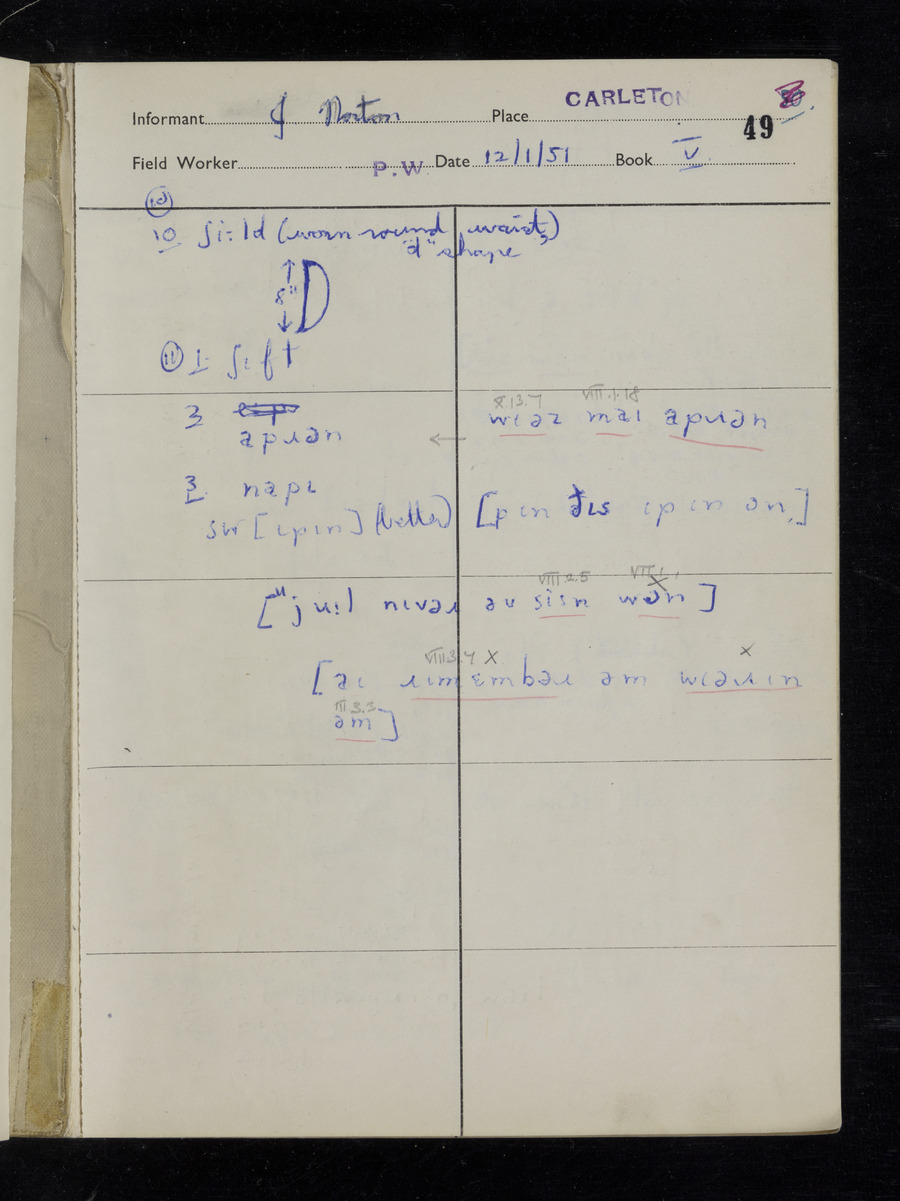 Informant J Norton Place CARLETON
49
Field Worker P.W. Date 12/1/51 Book V
10
10 ʃi:ld (worn round waist,)
"d" shape
8"
11 1 ʃɪft
3 apɹən wɪəz maɪ apɹən
X.13.7 VIII.1.18
3. napɪ
sw [ɪpɪn] (better) [pɪn ðɪs ɪpɪn ən]
VIII.2.5 VII.1.1
[juːl nɪvəɹ əv sisn wən]
VIII 3.4 X X
[aɪ ɹɪmɛmbəɹ əm wɪəɹɪn
III 3.3
əm]